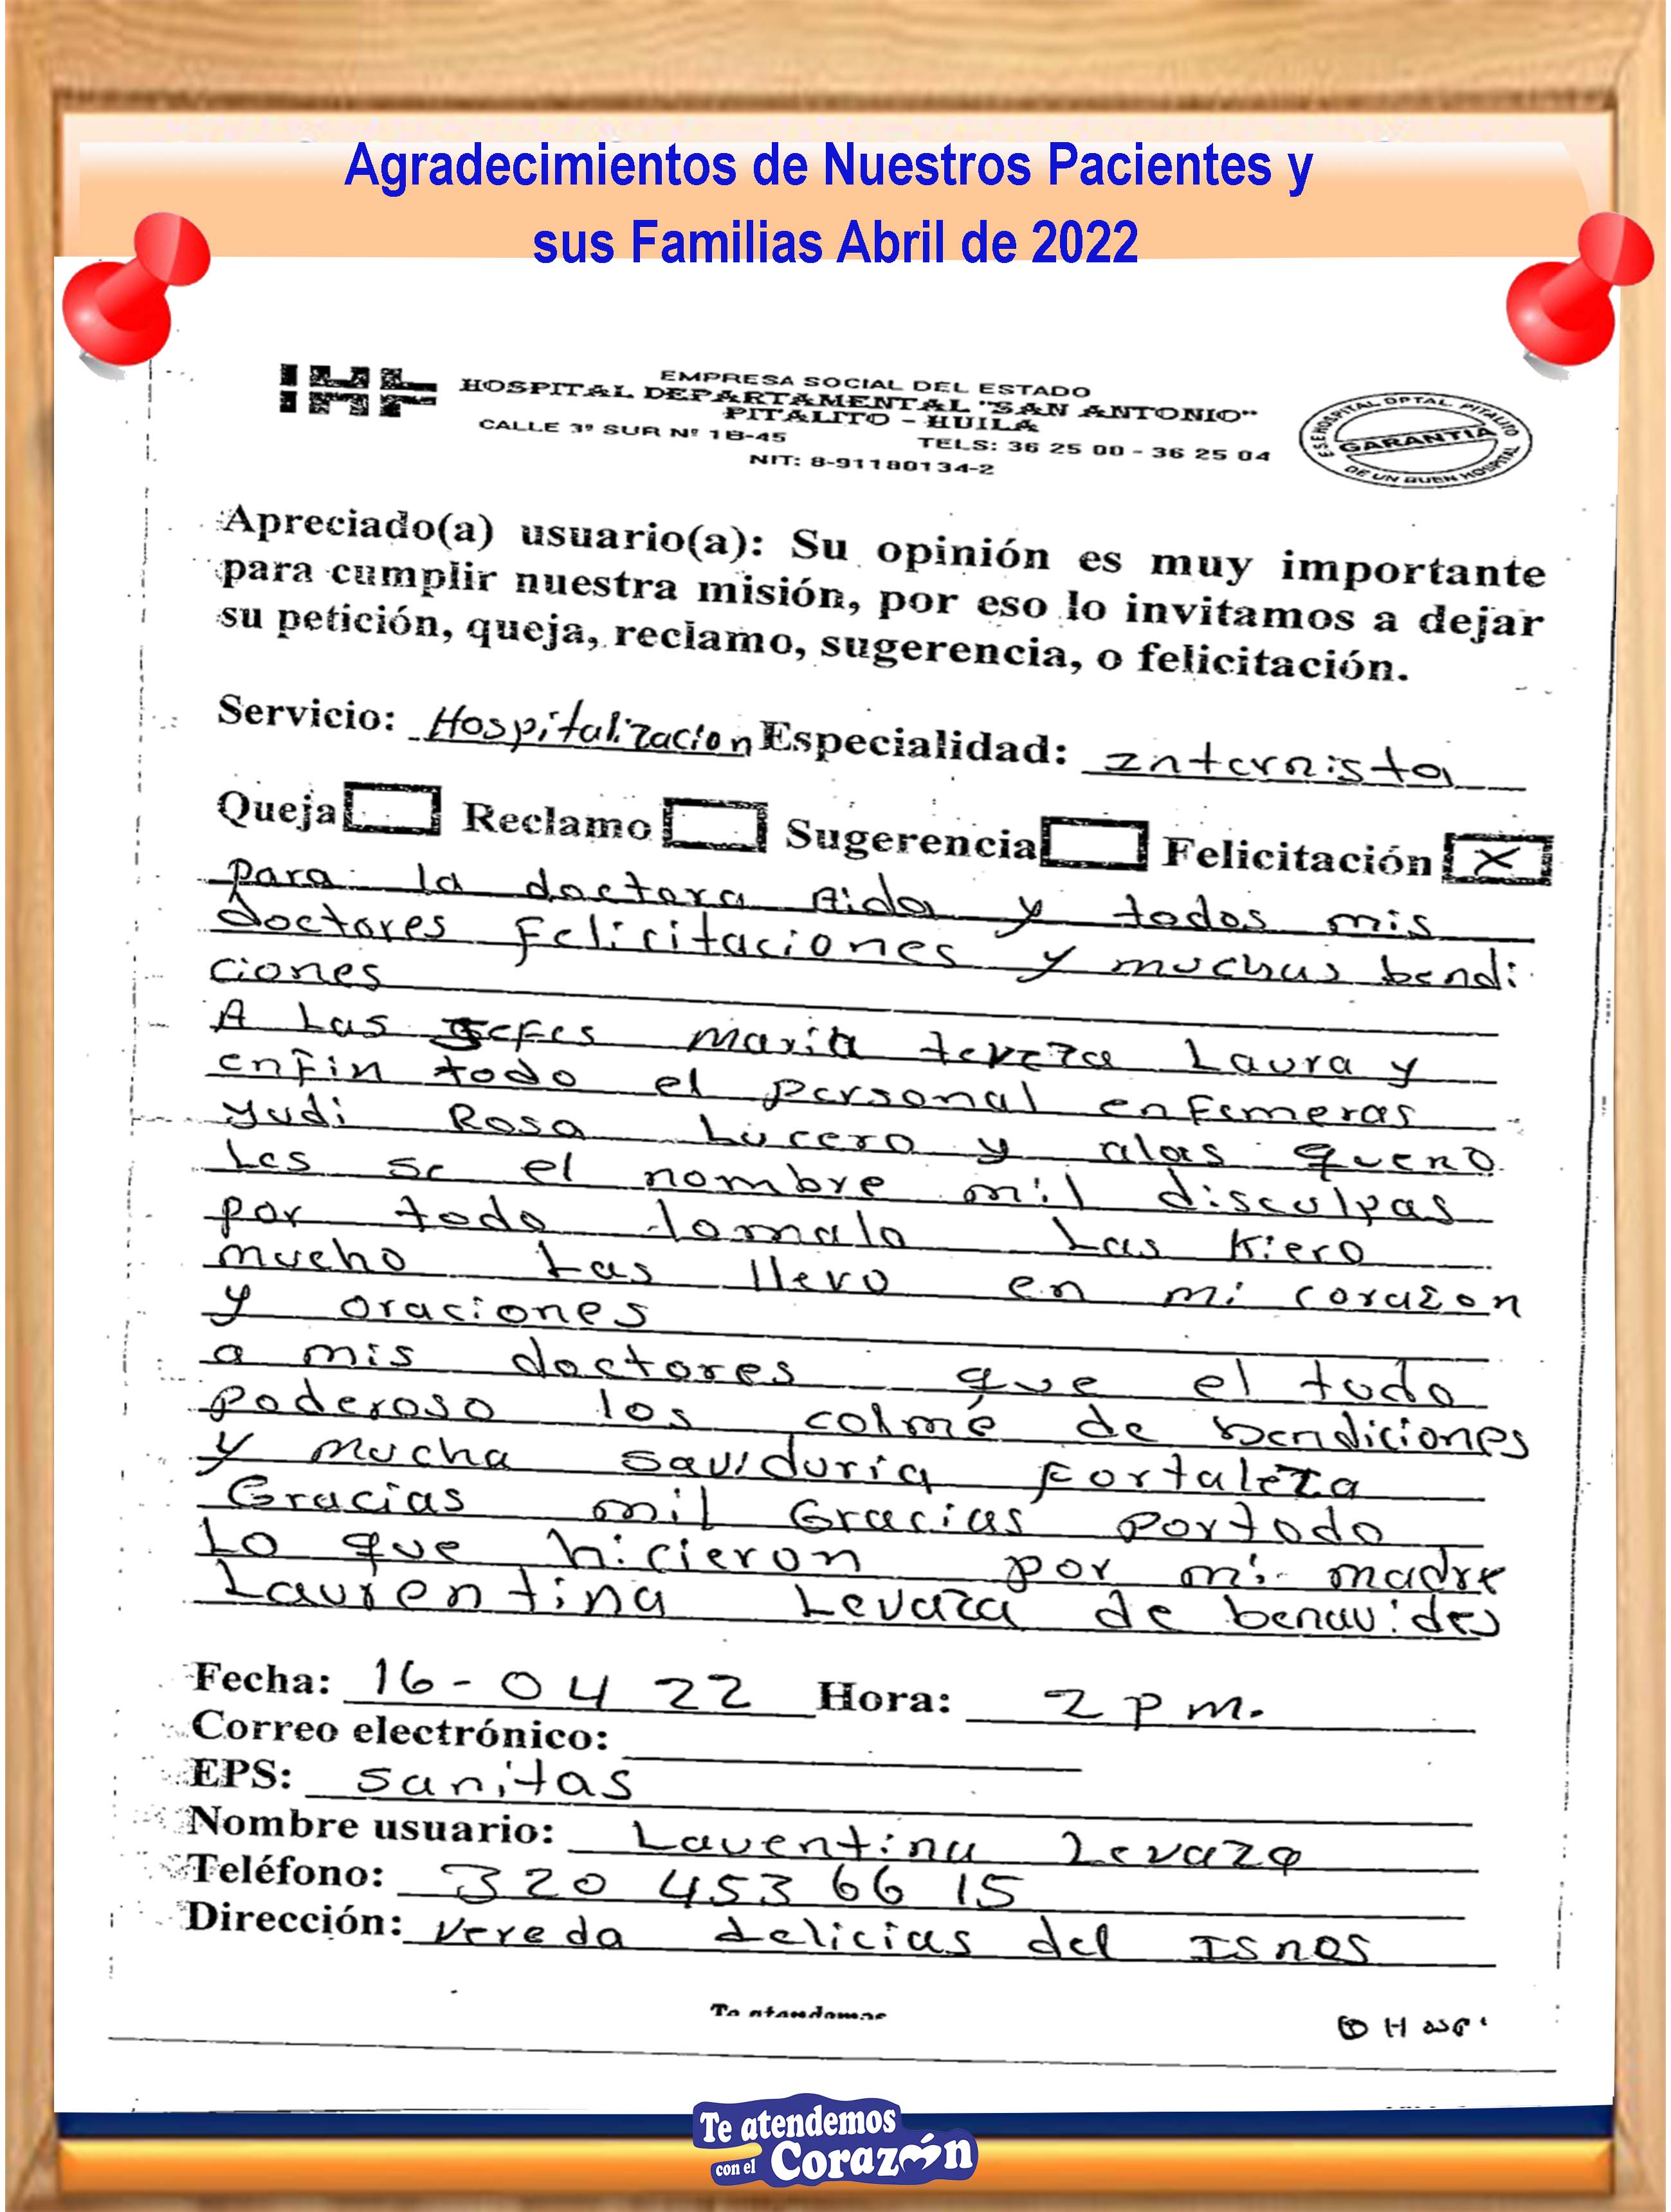 Agradecimientos de Nuestros Pacientes y
sus Familias Abril de 2022
EMPRESA SOCIAL DEL ESTADO
HOSPITAL DEPARTAMENTAL "SAN ANTONIO"
PITALITO - HUILA
CALLE 3ª SUR Nº 1B-45 TELS: 36 25 00 - 36 25 04
NIT: 8-91180134-2
E.S.E HOSPITAL DPTAL. PITALITO
GARANTIA
DE UN BUEN HOSPITAL
Apreciado(a) usuario(a): Su opinión es muy importante
para cumplir nuestra misión, por eso lo invitamos a dejar
su petición, queja, reclamo, sugerencia, o felicitación.
Servicio: Hospitalizacion Especialidad: Internista
Queja Reclamo Sugerencia Felicitación X
para la doctora Aida y todos mis
doctores Felicitaciones y muchas bendi
ciones
A Las Jefes maria tereza Laura y
enfin todo el personal enfemeras
yudi Rosa Lucero y alas queno
Les se el nombre mil disculpas
por todo lomalo Las Kiero
mucho Las llevo en mi corazon
y oraciones
a mis doctores que el todo
poderoso los colme de bendiciones
y mucha saviduria fortaleza
Gracias mil Gracias portodo
Lo que hicieron por mi madre
Laurentina Levaza de benavides
Fecha: 16-04 22 Hora: 2 pm.
Correo electrónico:
EPS: sanitas
Nombre usuario: Laventina Levaza
Teléfono: 320 453 66 15
Dirección: vereda delicias del Isnos
Te atendemos
Te atendemos
con el Corazón